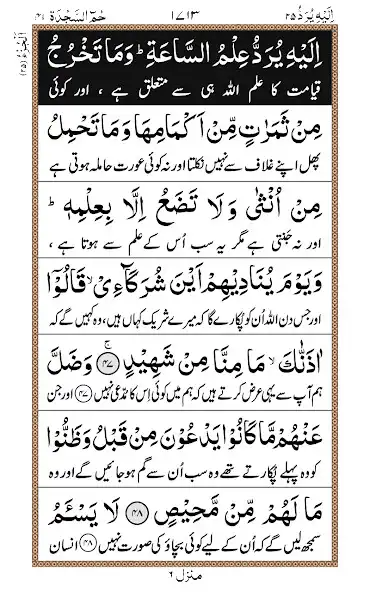 اِلَیْہِ یُرَدُّ ۲۵ ۱۷۱۳ حٰمٓ السَّجْدَة ۴۱
اَلْجُزْءُ (۲۵)
اِلَيْهِ يُرَدُّ عِلْمُ السَّاعَةِ ؕ وَمَا تَخْرُجُ
قیامت کا علم اللہ ہی سے متعلق ہے ، اور کوئی
مِنْ ثَمَرٰتٍ مِّنْ اَكْمَامِهَا وَمَا تَحْمِلُ
پھل اپنے غلاف سے نہیں نکلتا اور نہ کوئی عورت حاملہ ہوتی ہے
مِنْ اُنْثٰى وَلَا تَضَعُ اِلَّا بِعِلْمِهٖ ؕ
اور نہ جنتی ہے مگر یہ سب اُس کے علم سے ہوتا ہے ،
وَيَوْمَ يُنَادِيْهِمْ اَيْنَ شُرَكَآءِیْ ۙ قَالُوْٓا
اور جس دن اللہ اُن کو پکارے گا کہ میرے شریک کہاں ہیں، وہ کہیں گے کہ
اٰذَنّٰكَ ۙ مَا مِنَّا مِنْ شَهِيْدٍ ۚ ﴿۴۷﴾ وَضَلَّ
ہم آپ سے یہی عرض کرتے ہیں کہ ہم میں کوئی اِس کا مدعی نہیں ﴿۴۷﴾ اور جن
عَنْهُمْ مَّا كَانُوْا يَدْعُوْنَ مِنْ قَبْلُ وَظَنُّوْا
کو وہ پہلے پُکارتے تھے وہ سب اُن سے گم ہوجائیں گے اور وہ
مَا لَهُمْ مِّنْ مَّحِيْصٍ ﴿۴۸﴾ لَا يَسْـَٔمُ
سمجھ لیں گے کہ اُن کے لیے کوئی بچاؤ کی صورت نہیں ﴿۴۸﴾ انسان
منزل ۶